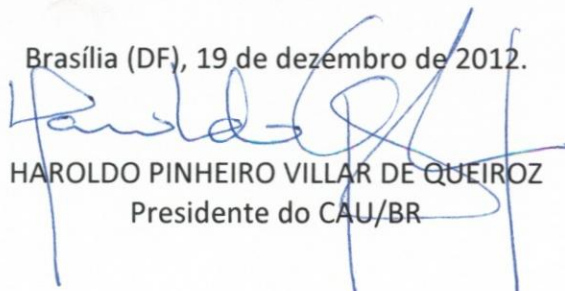 Brasília (DF), 19 de dezembro de 2012.
Haroldo
HAROLDO PINHEIRO VILLAR DE QUEIROZ
Presidente do CAU/BR